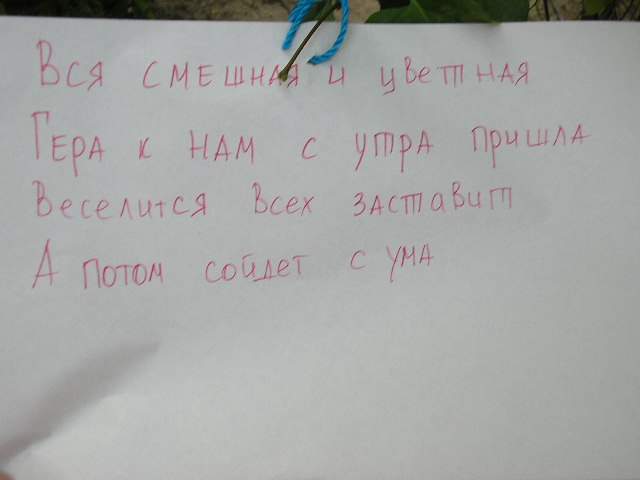 Вся смешная и цветная
Гера к нам с утра пришла
Веселится всех заставит
А потом сойдет с ума